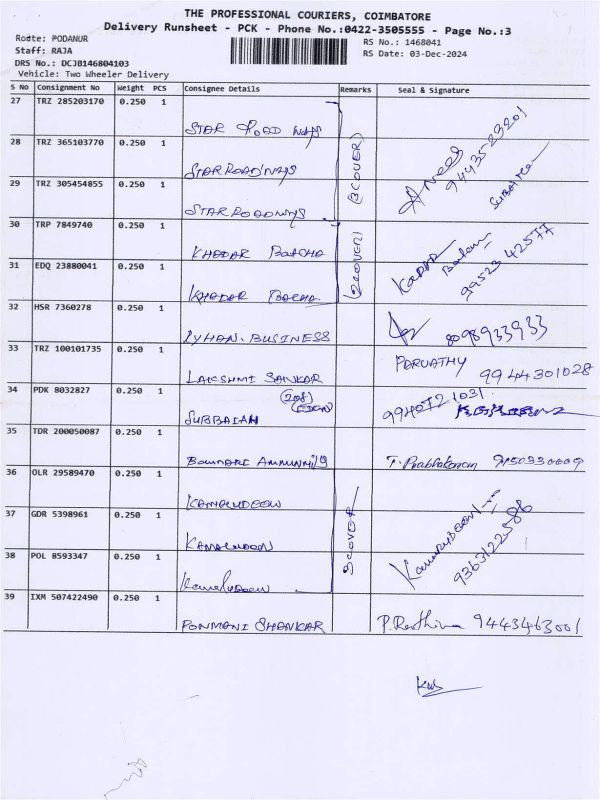 THE PROFESSIONAL COURIERS, COIMBATORE
Delivery Runsheet - PCK - Phone No.:0422-3505555 - Page No.:3
Route: PODANUR
RS No.: 1468041
Staff: RAJA
RS Date: 03-Dec-2024
DRS No.: DCJB146804103
Vehicle: Two Wheeler Delivery
S No Consignment No Weight PCS Consignee Details Remarks Seal & Signature
27 TRZ 285203170 0.250 1
STAR ROAD WAYS
28 TRZ 365103770 0.250 1
STAR ROADWAYS
3COVER)
29 TRZ 305454855 0.250 1
STAR ROADWAYS
30 TRP 7849740 0.250 1
KHADAR BATCHA
31 EDQ 23880041 0.250 1
KHADAR BATCHA
(2COVER)
KADAR
99523 42577
32 HSR 7360278 0.250 1
BUSINESS
8098933933
33 TRZ 100101735 0.250 1
LAKSHMI SANKAR
PARVATHY 9944301028
34 PDK 8032827 0.250 1
SUBBAIAH
9940721031
35 TDR 200050087 0.250 1
T. Prabhakaran 9150330009
36 OLR 29589470 0.250 1
KAMALUDEEN
37 GDR 5398961 0.250 1
KAMALUDEEN
3COVER
9363122586
38 POL 8593347 0.250 1
Kamaludeen
39 IXM 507422490 0.250 1
PONMANI SHANKAR
9443463001